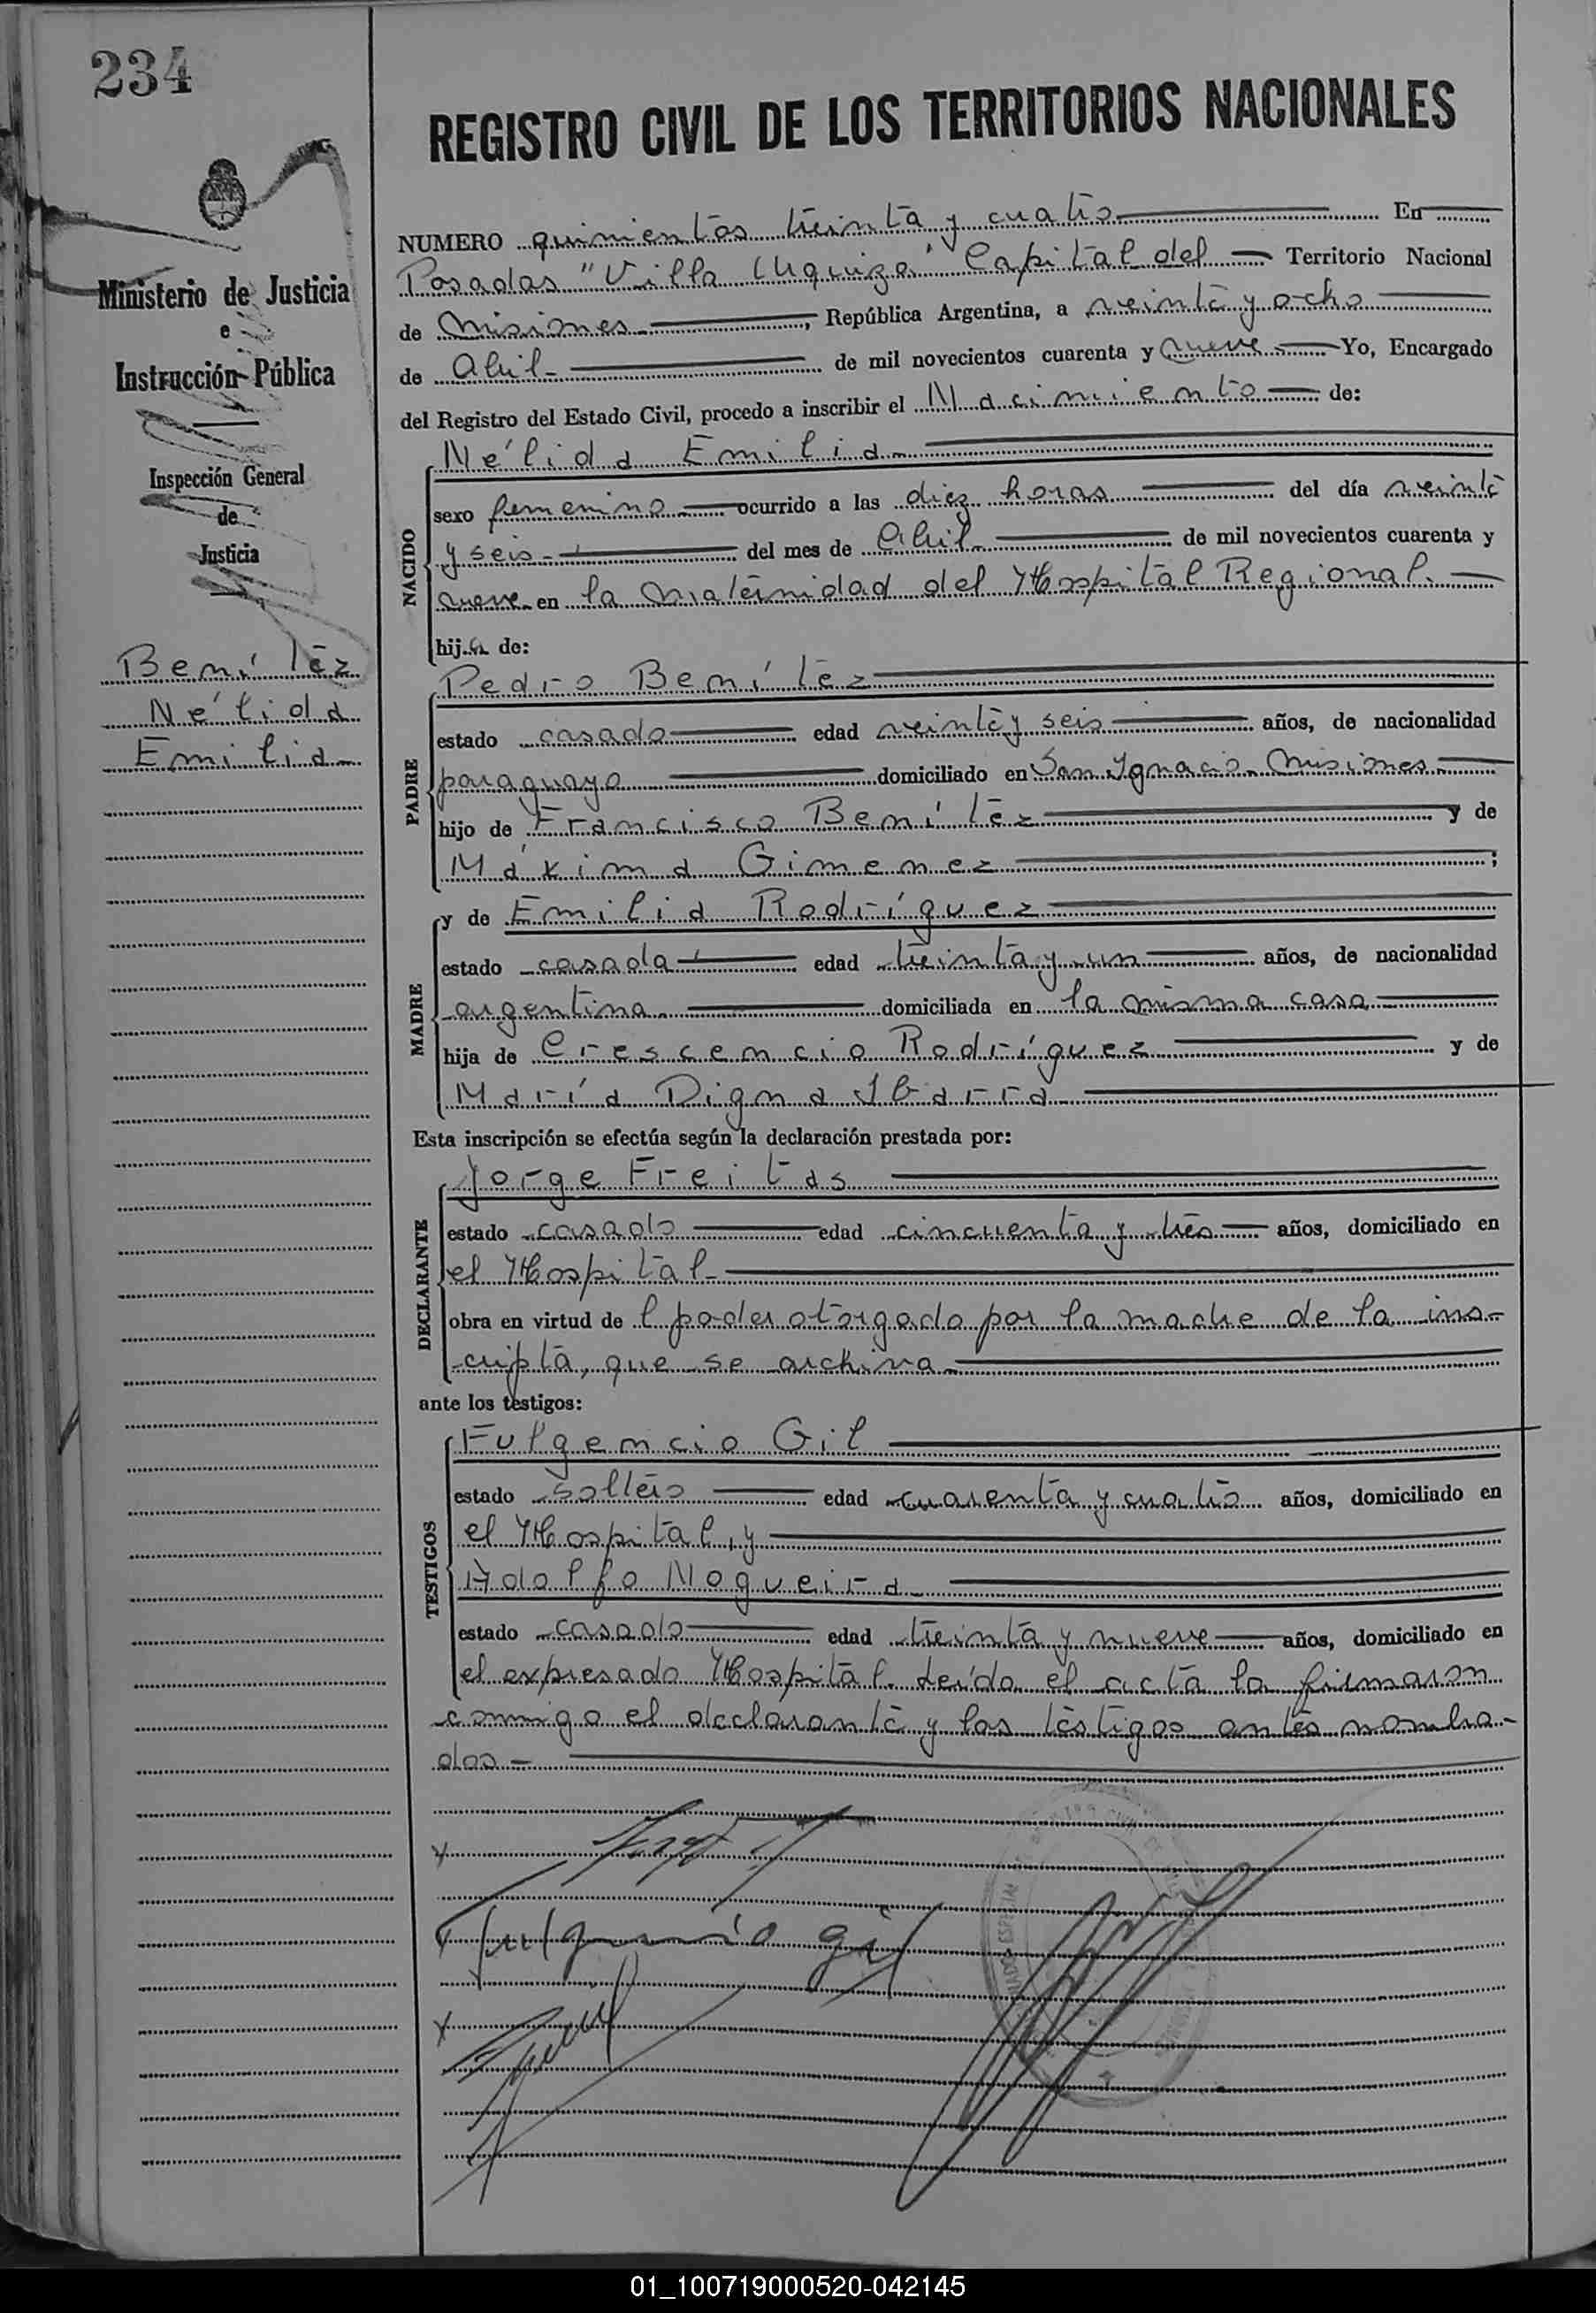 234
REGISTRO CIVIL DE LOS TERRITORIOS NACIONALES
Ministerio de Justicia
e
Instrucción Pública
Inspección General
de
Justicia
Benítez
Nélida
Emilia
NUMERO quinientos treinta y cuatro En
Posadas "Villa Urquiza" Capital del Territorio Nacional
de Misiones, República Argentina, a veinte y ocho
de Abril de mil novecientos cuarenta y nueve Yo, Encargado
del Registro del Estado Civil, procedo a inscribir el Nacimiento de:
NACIDO
Nélida Emilia
sexo femenino ocurrido a las diez horas del día veinte
y seis del mes de Abril de mil novecientos cuarenta y
nueve en la Maternidad del Hospital Regional.
hija de:
PADRE
Pedro Benítez
estado casado edad veinte y seis años, de nacionalidad
paraguayo domiciliado en San Ignacio - Misiones
hijo de Francisco Benítez y de
Máxima Gimenez ;
MADRE
y de Emilia Rodríguez
estado casada edad treinta y un años, de nacionalidad
argentina domiciliada en la misma casa
hija de Crescencio Rodríguez y de
María Digna Ibarra
Esta inscripción se efectúa según la declaración prestada por:
DECLARANTE
Jorge Freitas
estado casado edad cincuenta y tres años, domiciliado en
el Hospital
obra en virtud de l poder otorgado por la madre de la ins-
cripta, que se archiva
ante los testigos:
TESTIGOS
Fulgencio Gil
estado soltero edad cuarenta y cuatro años, domiciliado en
el Hospital, y
Adolfo Nogueira
estado casado edad treinta y nueve años, domiciliado en
el expresado Hospital. Leída el acta la firmaron
conmigo el declarante y los testigos antes nombra-
dos -
Fulgencio Gil
01_100719000520-042145